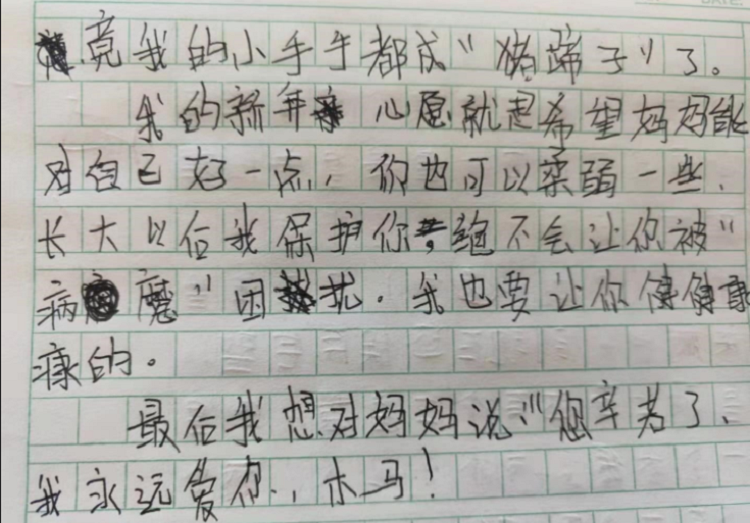 竟我的小手手都成"猪蹄子"了。
我的新年心愿就是希望妈妈能
对自己好一点，你也可以柔弱一些，
长大以后我保护你，绝不会让你被"
病魔"困扰。我也要让你健健康
康的。
最后我想对妈妈说："您辛苦了，
我永远爱你，木马！